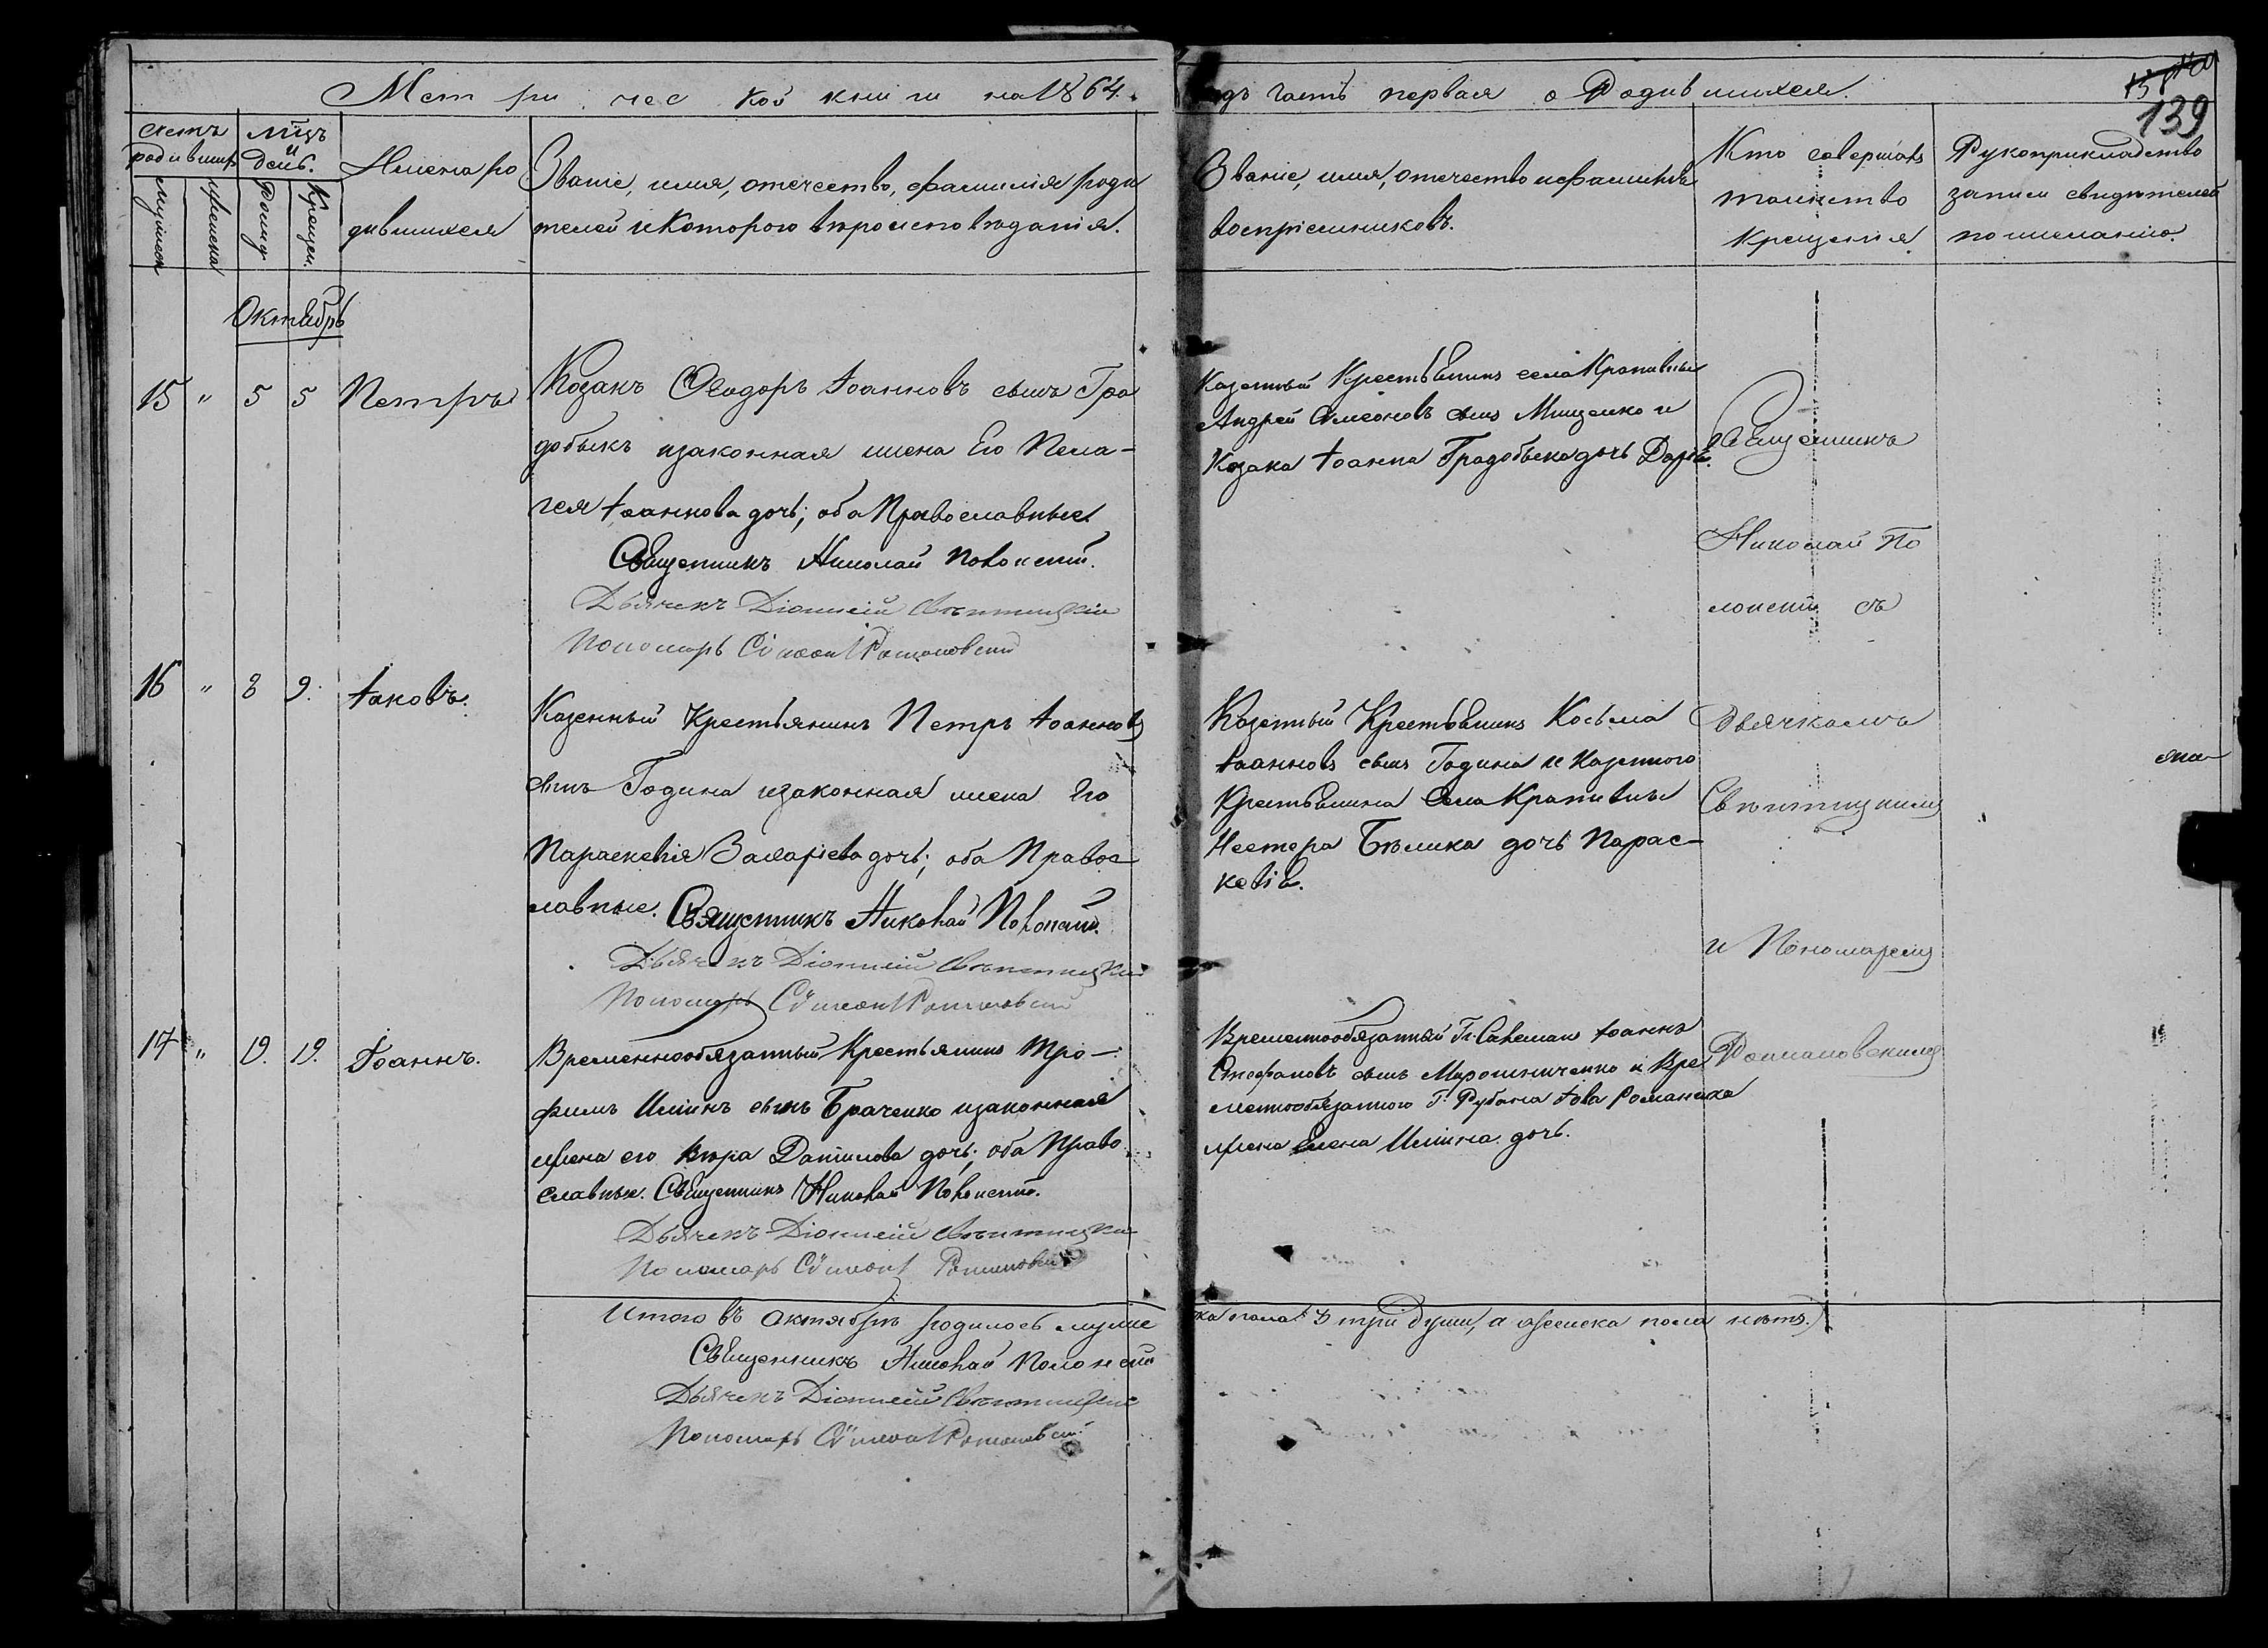 Метрической книги на 1864.
годъ часть первая о Родившихся.
139
счетъ родивших
мѣцъ и день.
Имена родившихся
Званіе, имя, отечество, фамилія роди
телей и Которого вѣроисповѣданія.
Званіе, имя, отечество и фамилія
воспріемниковъ.
Кто совершалъ
таинство
крещенія
Рукоприкладство
записи свидѣтелей
по желанію.
мужеска
женска
Рожд
Крещен.
Октябрь
15 " 5 5 Петръ
Козакъ Ѳеодоръ Іоанновъ сынъ Гра
добыкъ изаконная жена Его Пела-
гея Іоаннова дочь; оба Православные.
Священникъ Николай Полонскій.
Дьячекъ Діонисій Свѣтицкій
Пономарь Сѵмеонъ Романовскій
Казенный Крестьянинъ села Крапивны
Андрей Симеоновъ сынъ Мищенко и
Козака Іоанна Градобыка дочь Дарія.
Священникъ
Николай По
лонскій съ
16 " 8 9. Іаковъ.
Казенный Крестьянинъ Петръ Іоанновъ
сынъ Година изаконная жена Его
Параскевія Захаріева дочь; оба Правос
лавные. Священникъ Николай Полонскій.
Дьячекъ Діонисій Свѣтицкій
Пономарь Сѵмеонъ Романовскій
Казенный Крестьянинъ Косьма
Іоанновъ сынъ Година и Казенного
Крестьянина Села Крапивны
Нестера Бѣлика дочь Парас-
кевія.
Дьячкомъ
Свѣтицкимъ
и Пономаремъ
17 " 19. 19. Іоаннъ.
Временнообязанный Крестьянинъ Тро-
фимъ Иліинъ сынъ Браченко изаконная
жена его Вѣра Данилова дочь; оба Право
славные. Священникъ Николай Полонскій.
Дьячекъ Діонисій Свѣтицкій
Пономарь Сѵмеонъ Романовскій
Временнообязанный Гг. Іоаннъ
Стефановъ сынъ Мирошниченко и Вре
меннообязанного Г. Рубана Іова Романенка
жена Елена Иліина дочь.
Романовскимъ
Итого въ Октябрѣ родилось муже
ска пола 3 три души, а женска пола нѣтъ.
Священникъ Николай Полонскій
Дьячекъ Діонисій Свѣтицкій
Пономарь Сѵмеонъ Романовскій